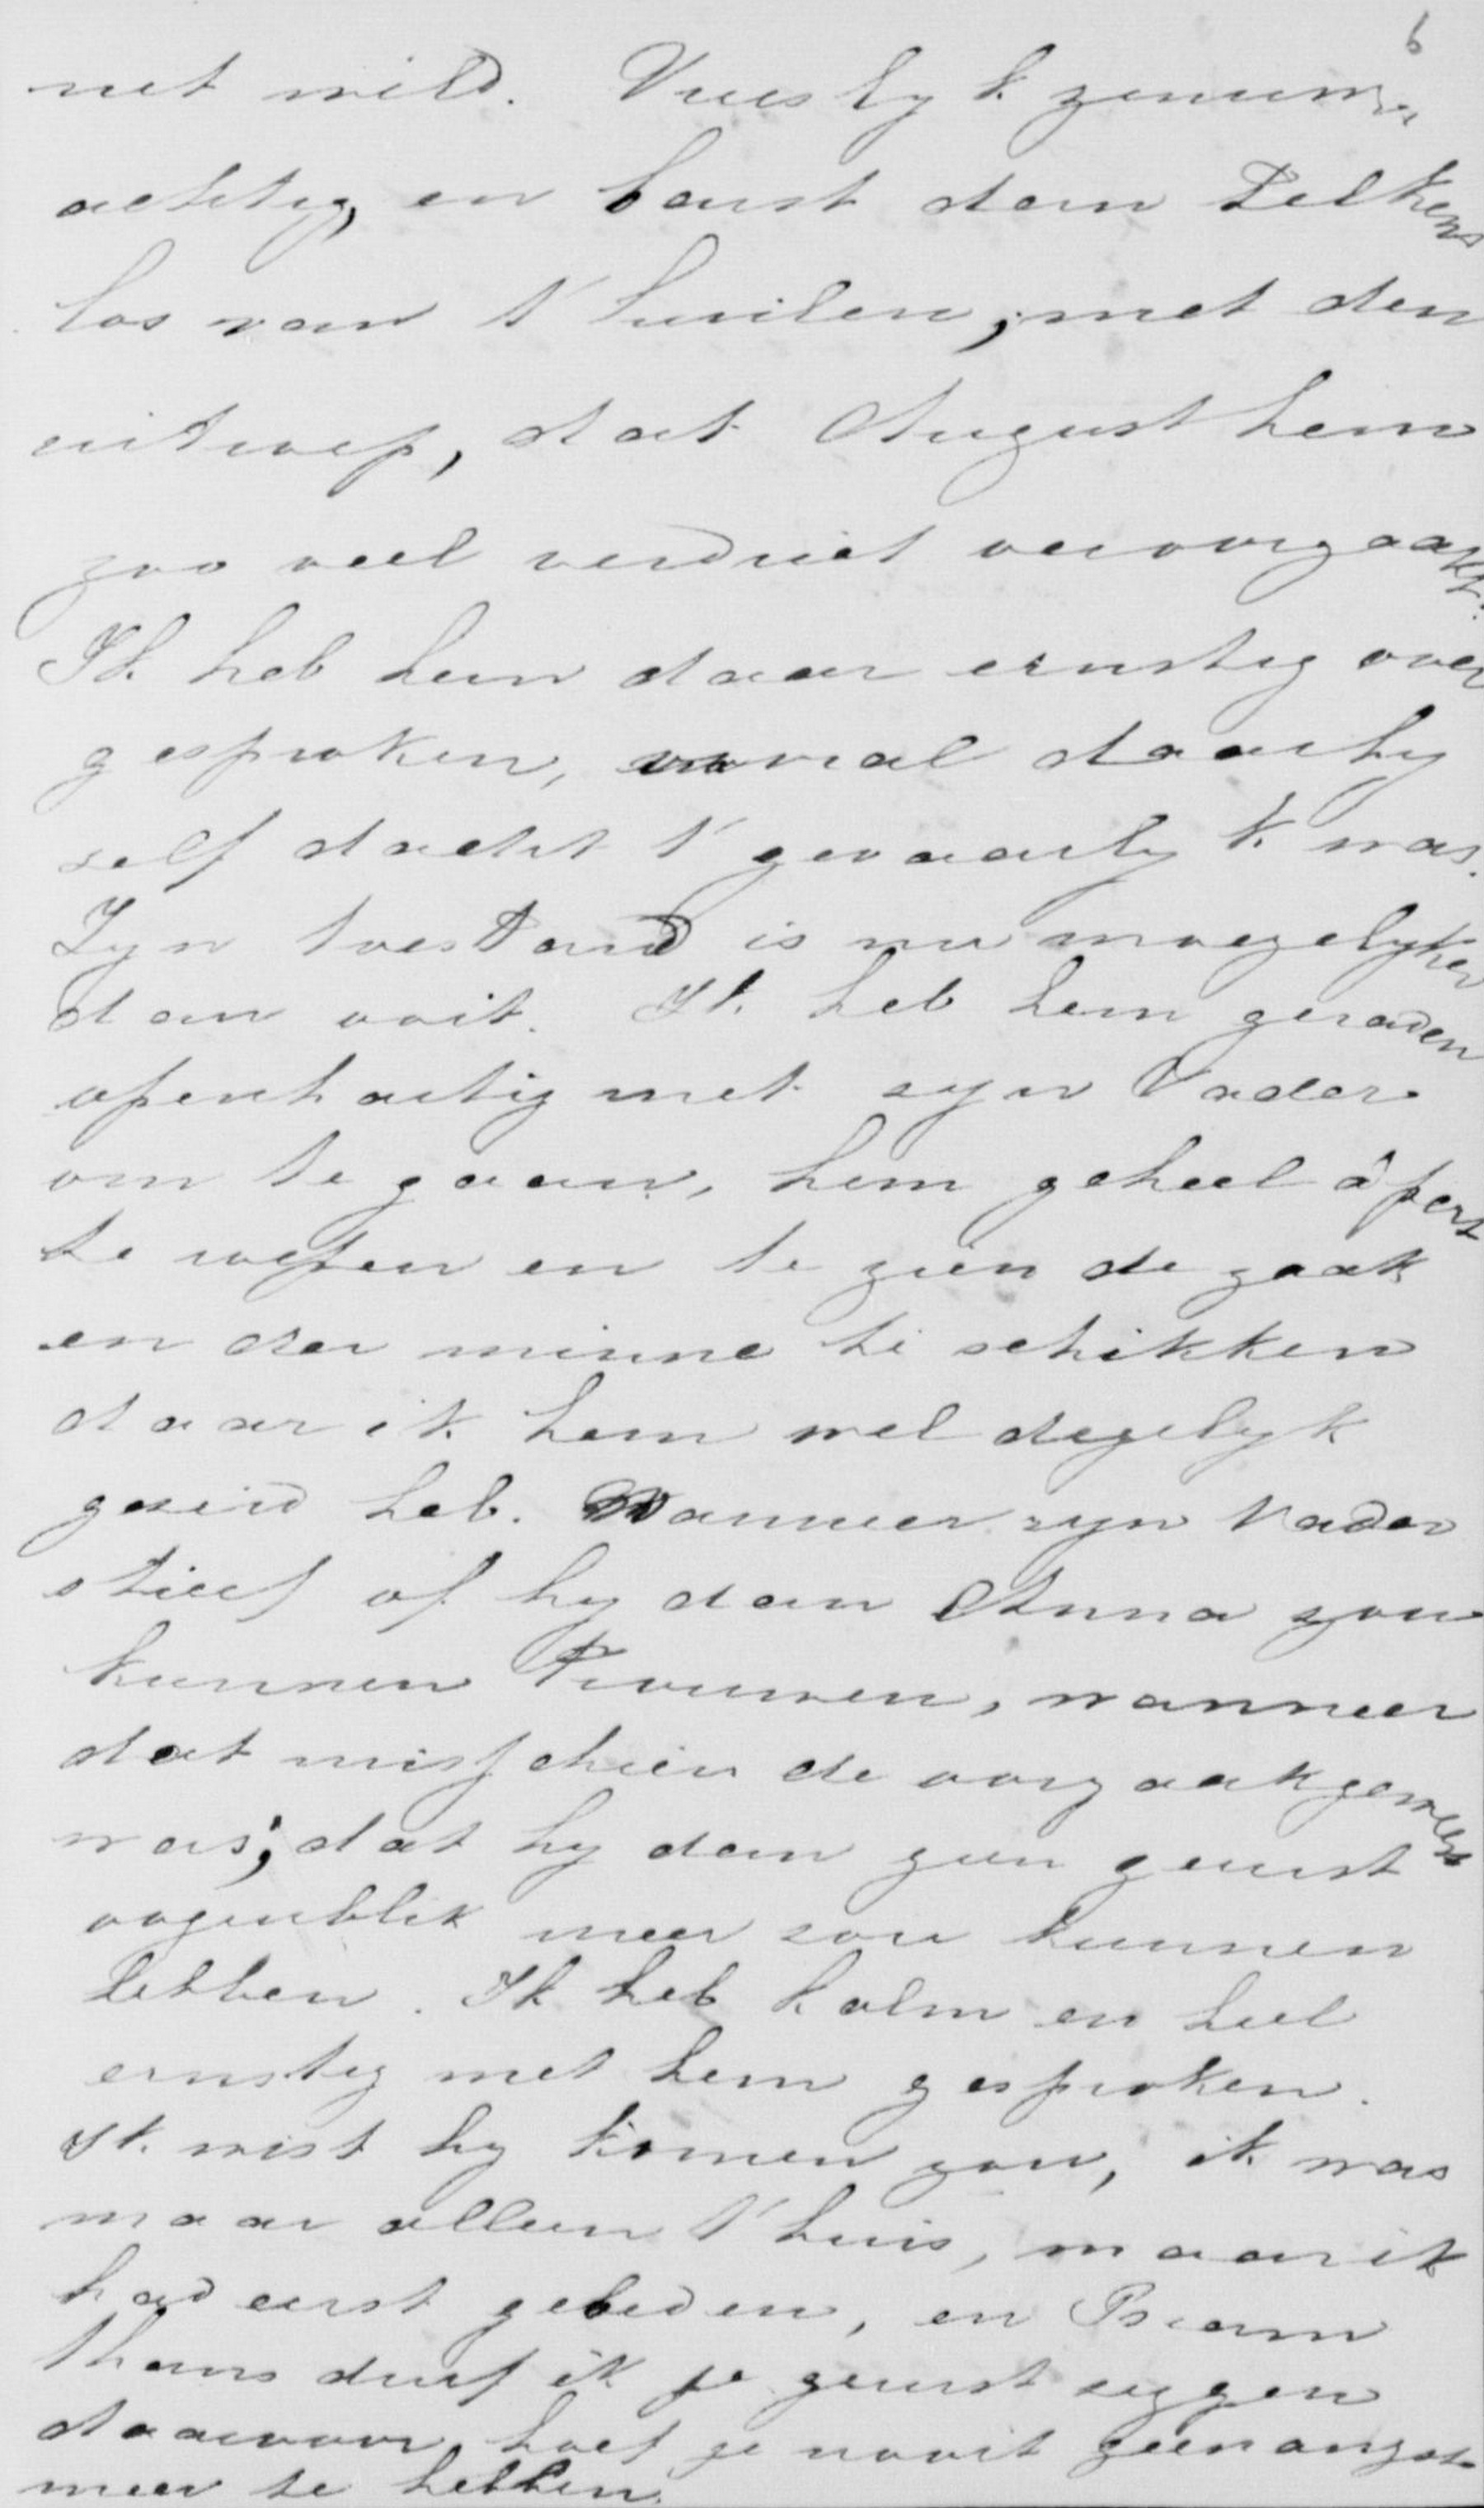 6
net wild. Vreeslyk zenuw
achtig, en barst dan telkens
los van t' huilen; met den
uitroep, dat August hem
zoo veel verdriet veroorzaakt.
Ik heb hem daar ernstig over
gesproken, vooral daar hy
self dacht t' gevaarlyk was.
Zyn toestand is nu moegelyker
dan ooit. Ik heb hem geraden
openhartig met zyn Vader
om te gaan, hem geheel
te roepen en te zien de zaak
en der minne te schikken
daar ik hem wel degelyk
gezeid heb. Wanneer zyn Vader
stierf of hy dan Anna zou
kunnen trouwen, wanneer
dat misschien de oorzaak geweest
was; dat hy dan geen gerust
oogenblik meer zou kunnen
hebben. Ik heb kalm en heel
ernstig met hem gesproken.
Ik wist hy komen zou, ik was
maar alleen t'huis, maar ik
had eerst gebeden, en Bram
thans durf ik je gerust zeggen
daarvoor hoef je nooit geen angst
meer te hebben.